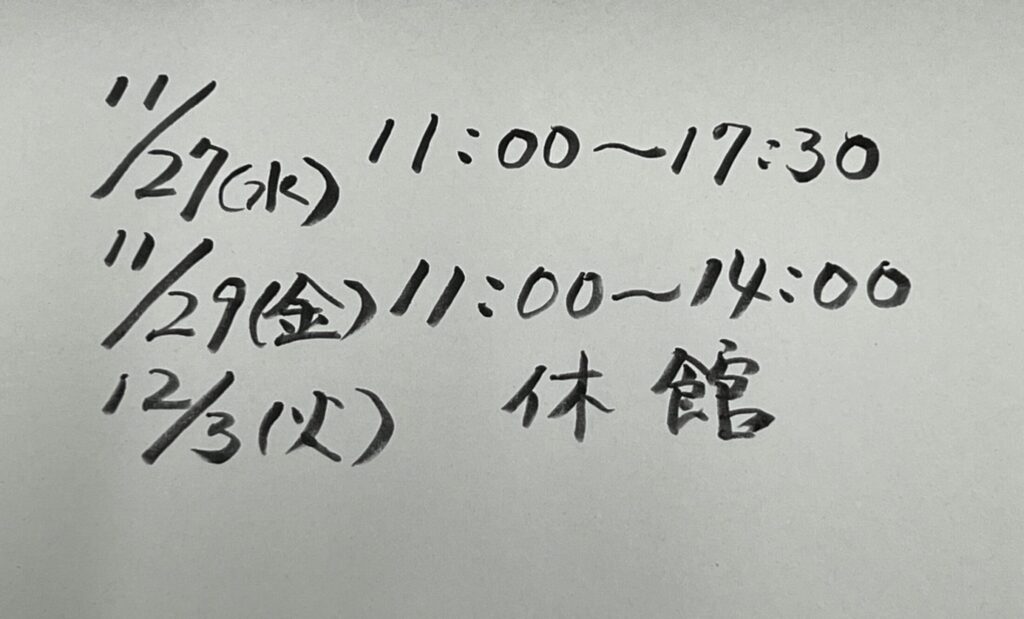 11/27(水) 11:00～17:30
11/29(金) 11:00～14:00
12/3(火) 休館